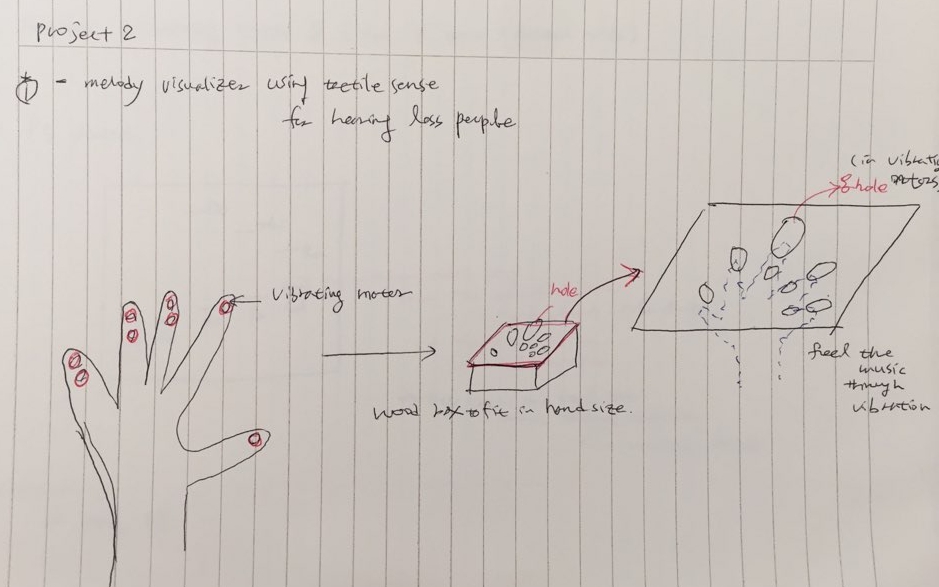 project 2
① - melody visualizer using tectile sense
for hearing loss people
(in vibrati
motors)
hole
vibrating motor
hole
wood box to fit in hand size.
feel the
music
through
vibration